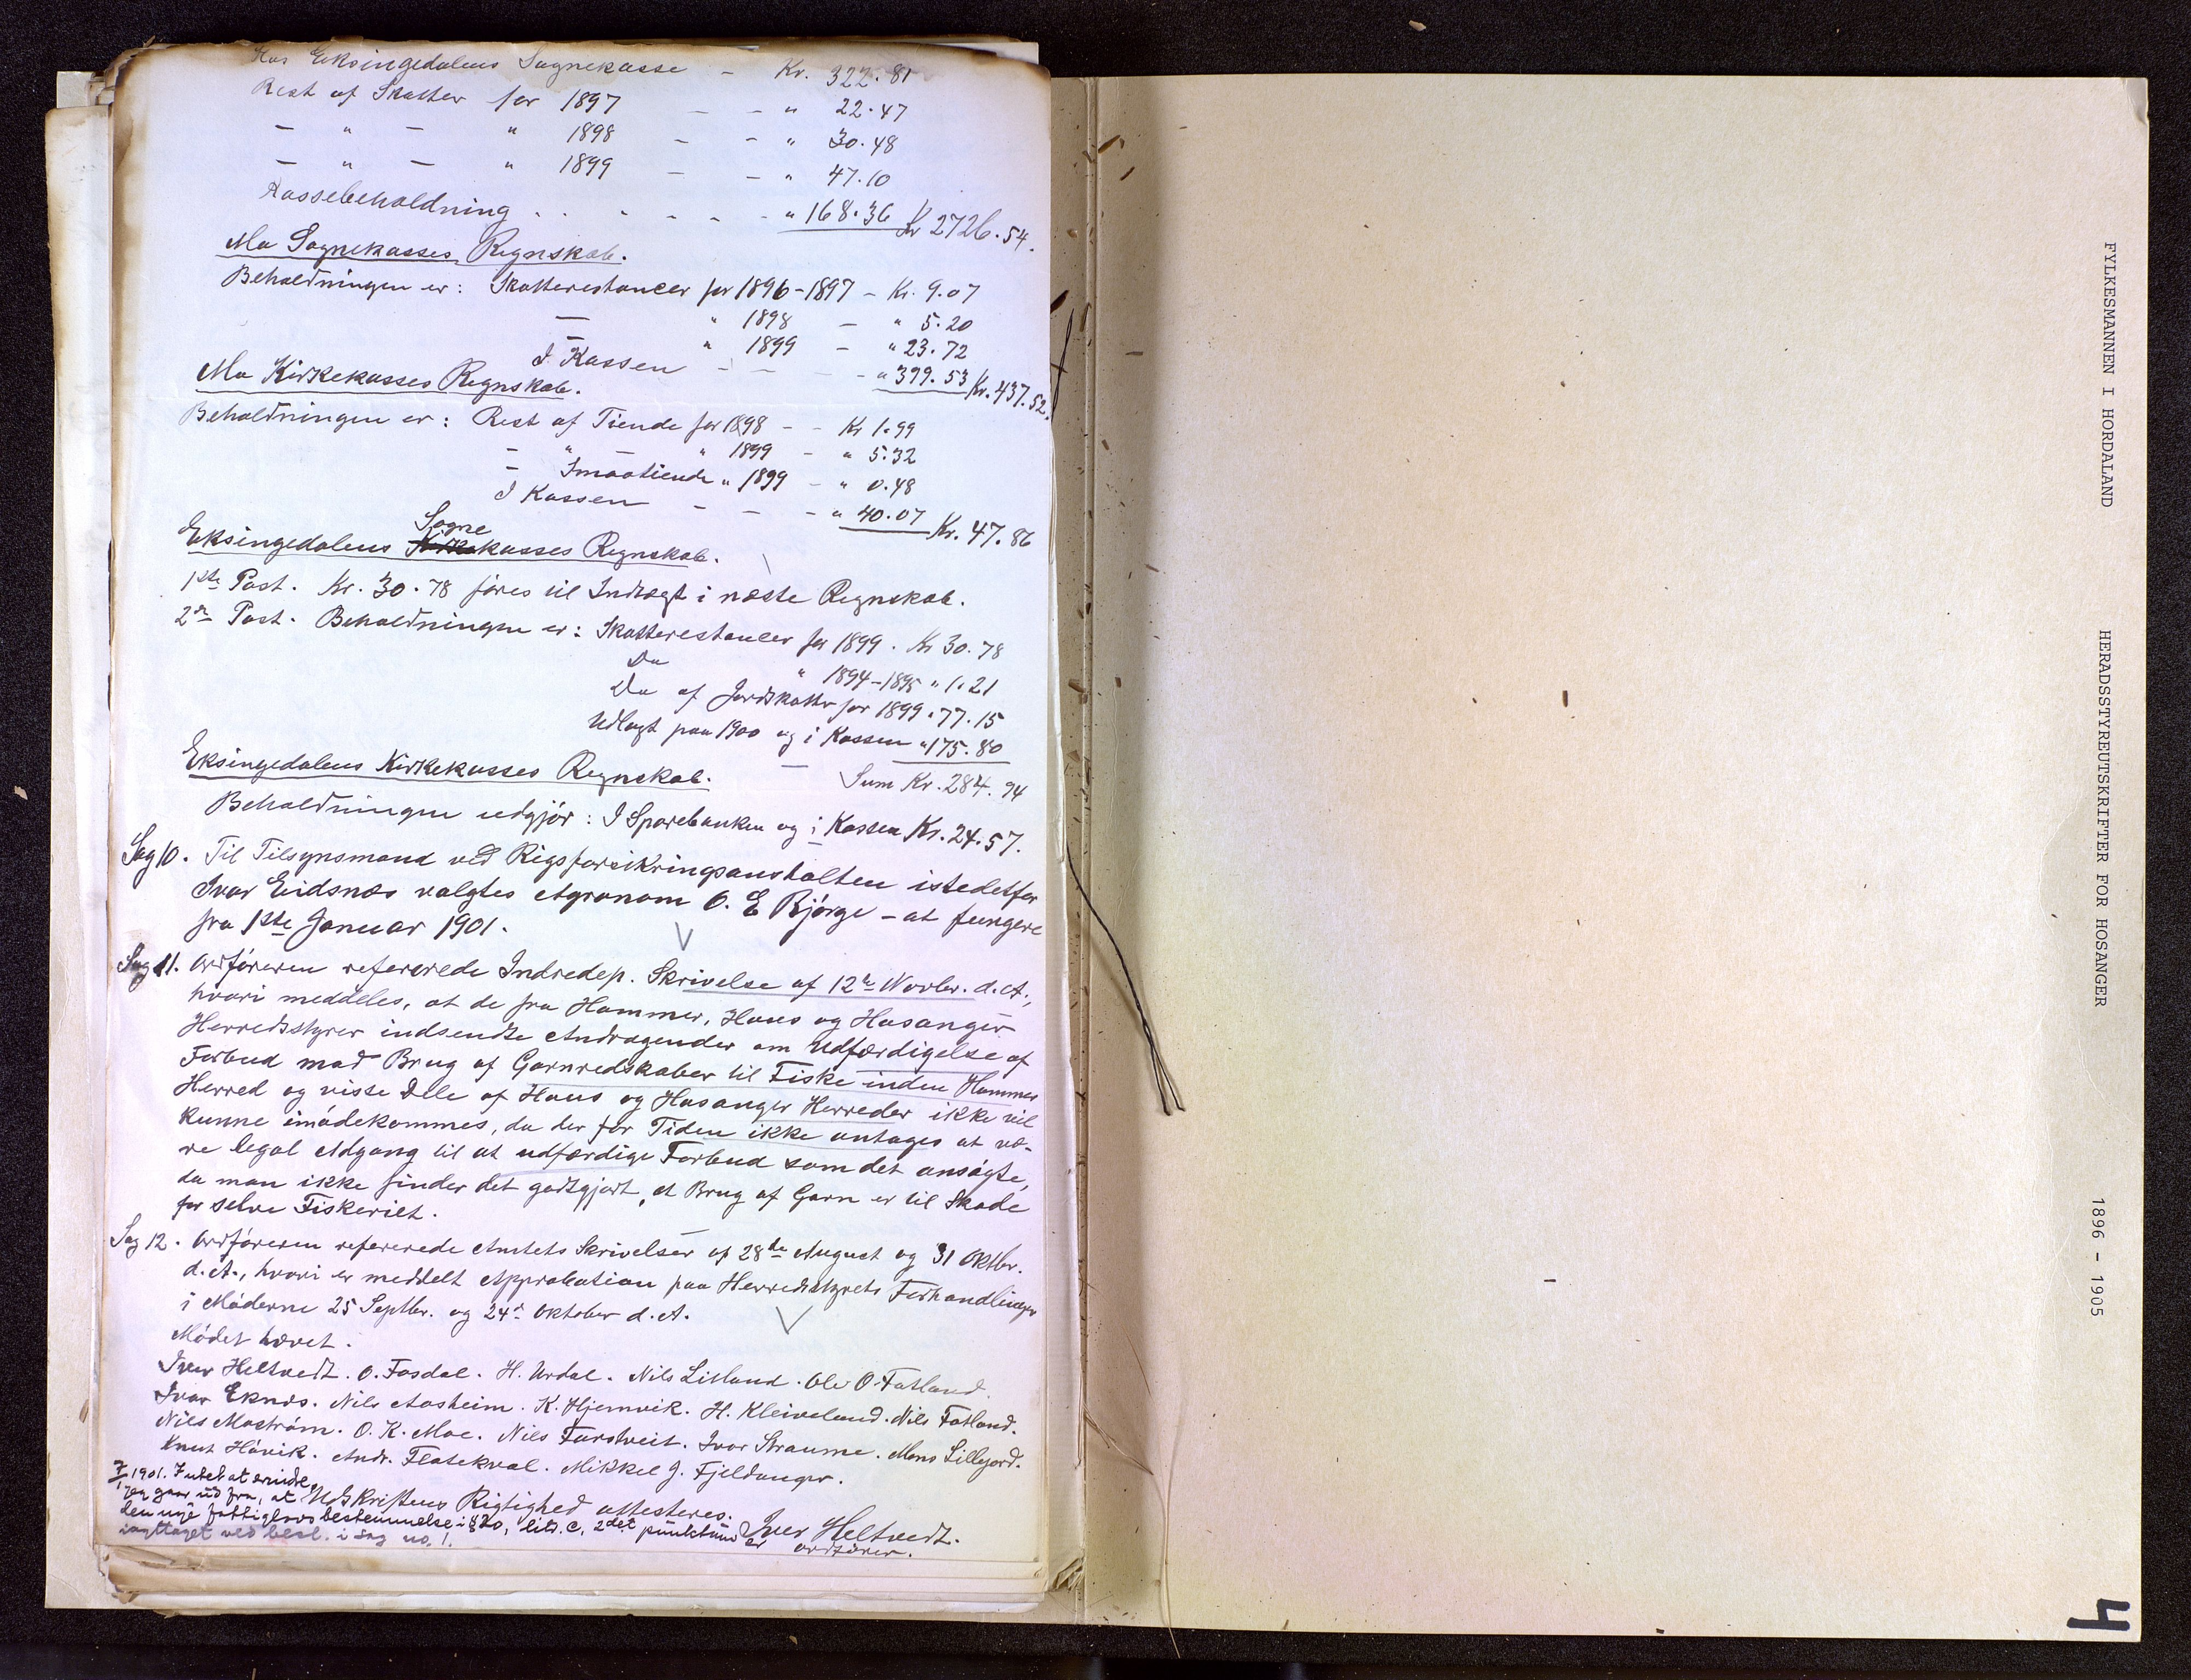 Hos Eksingedalens Sognekasse - Kr. 322.81
Rest af Skatter for 1897 - - " 22.47
- " - " 1898 - - " 30.48
- " - " 1899 - - " 47.10
Kassebeholdning . . - - - - " 168.36 Kr 2726.54.
Mo Sognekasses Regnskab.
Beholdningen er: Skatterestancer for 1896-1897 - Kr. 9.07
- " 1898 - " 5.20
- " 1899 - " 23.72
I Kassen - - - - " 399.53 Kr. 437.52.
Mo Kirkekasses Regnskab.
Beholdningen er: Rest af Tiende for 1898 - - Kr 1.99
- " - " 1899 - " 5.32
- Smaatiende " 1899 - " 0.48
I Kassen - - - " 40.07 Kr. 47.86
Sogne
Eksingedalens Kirkekasses Regnskab.
1ste Post. Kr. 30.78 föres til Indtægt i næste Regnskab.
2den Post. Beholdningen er: Skatterestancer for 1899. Kr 30.78
Do " 1894-1895 " 1.21
Do af Jordskatter for 1899 " 77.15
Udlagt paa 1900 og i Kassen " 175.80
Sum Kr. 284.94
Eksingedalens Kirkekasses Regnskab.
Beholdningen udgjör: I Sparebanken og i Kassen Kr. 24.57.
Sag 10. Til Tilsynsmand ved Rigsforsikringsanstalten istedetfor
Ivar Eidsnes valgtes Agronom O. E Bjørge - at fungere
fra 1ste Januar 1901.
Sag 11. Ordföreren refererede Indredep. Skrivelse af 12te Novbr. d.A.,
hvori meddeles, at de fra Hammer, Haus og Hosanger
Herredsstyrer indsendte Andragender om Udfærdigelse af
Forbud mod Brug af Garnredskaber til Fiske inden Hammer
Herred og visse Dele af Haus og Hosanger Herreder ikke vil
kunne imödekommes, da der for Tiden ikke antages at væ-
re legal Adgang til at udfærdige Forbud som det ansögte,
da man ikke finder det godtgjort, at Brug af Garn er til Skade
for selve Fiskeriet.
Sag 12. Ordföreren refererede Amtets Skrivelser af 28de August og 31 Oktbr.
d.A., hvori er meddelt Approbation paa Herredsstyrets Forhandlinger
i Möderne 25 Septbr. og 24de Oktober d.A.
Mödet hævet.
Iver Heltvedt. O. Fosdal. H. Urdal. Nils Litland. Ole O. Fatland.
Ivar Eknes. Nils Aasheim. K. Hjemvik. H. Kleiveland. Nils Fatland.
Nils Moström. O. K. Moe. Nils Furstveit. Ivar Straume. Mons Lillejord.
Knut Hövik. Andr. Flatekval. Mikkel J. Fjeldanger.
Udskriftens Rigtighed attesteres.
Iver Heltvedt.
ordförer.
1901. Intet at erindre,
jeg gaar ud fra, at
den nye fattiglovs bestemmelse i § 20, litr. c, 2det punktum er
iagttaget ved besl. i sag no. 1.
FYLKESMANNEN I HORDALAND HERADSSTYREUTSKRIFTER FOR HOSANGER 1896 - 1905
4